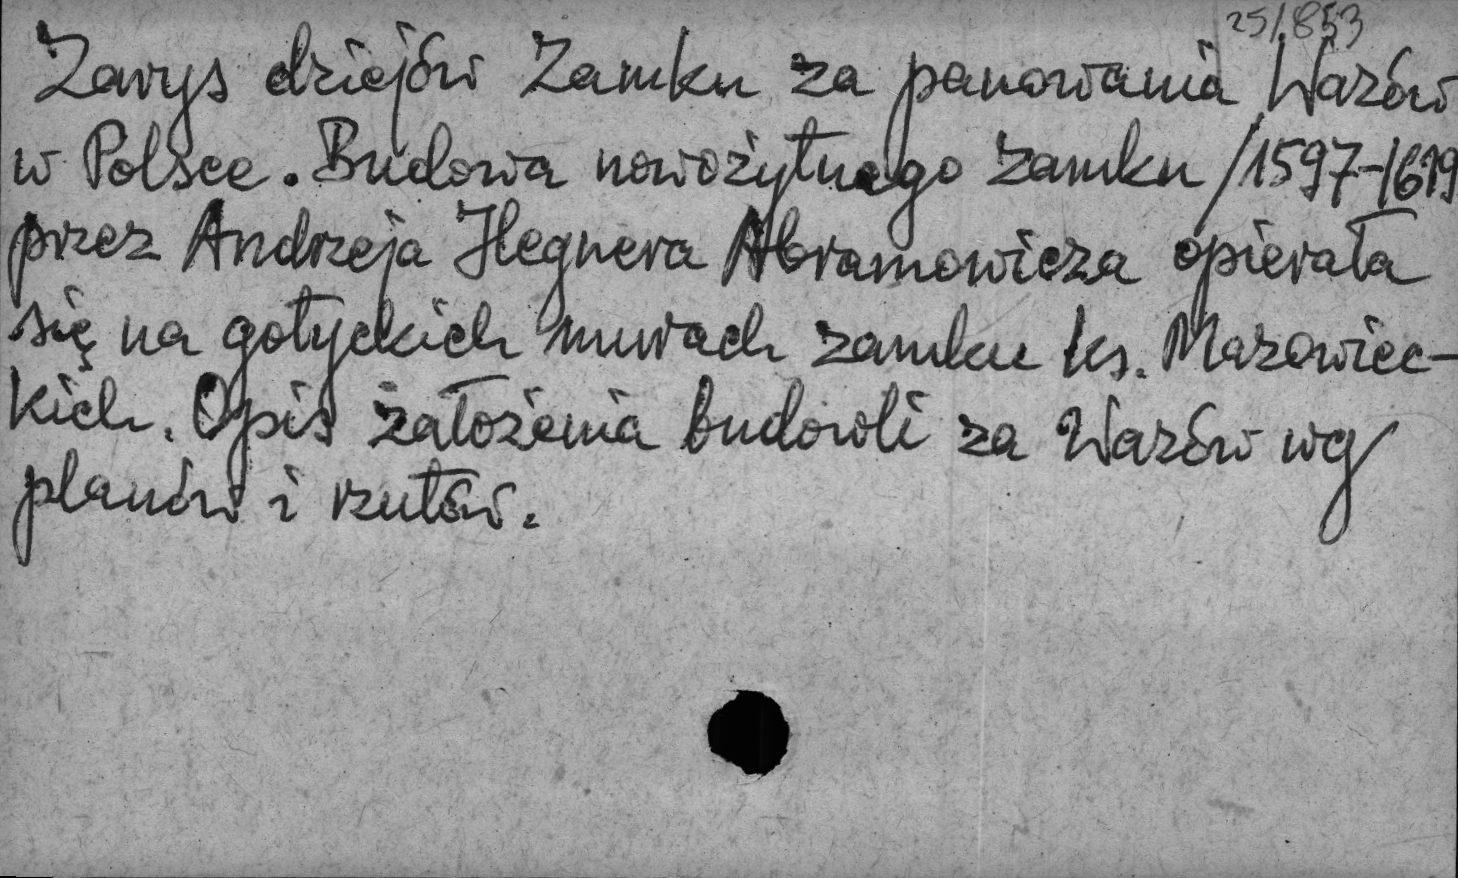 25/853
Zarys dziejów Zamku za panowania Wazów
w Polsce. Budowa nowożytnego zamku /1597-1619
przez Andrzeja Hegnera Abramowicza opierała
się na gotyckich murach zamku ks. Mazowiec-
kich. Opis założenia budowli za Wazów wg
planów i rzutów.